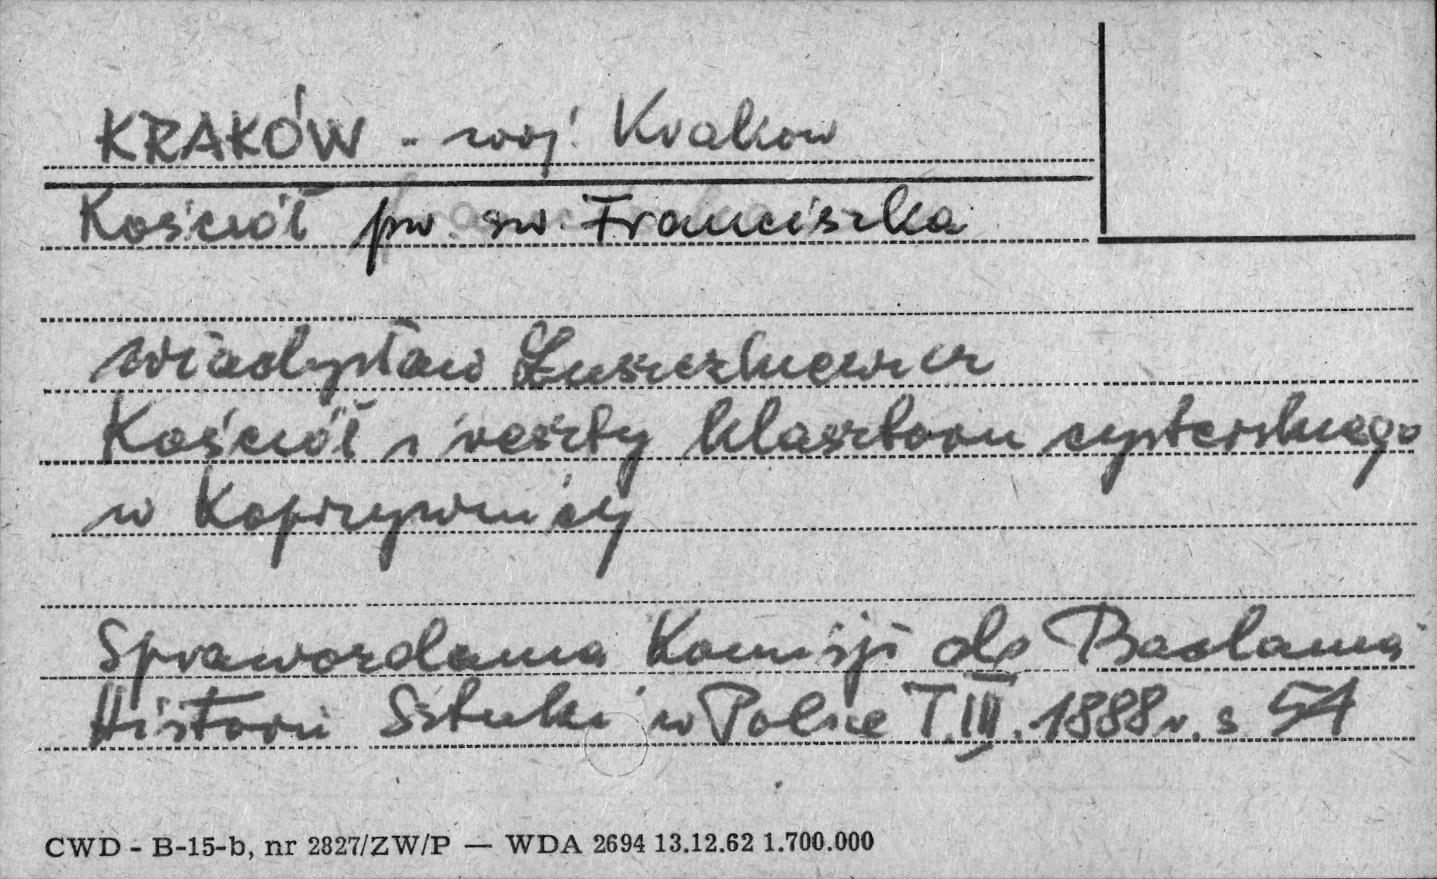 KRAKÓW - woj. Krakow
Kościół pw. św. Franciszka
Władysław Łuszczkiewicz
Kościół i reszty klasztoru cysterskiego
w Koprzywnicy
Sprawozdania Komisji do Badania
Historii Sztuki w Polsce T.III. 1888 r. s 54
CWD - B-15-b, nr 2827/ZW/P — WDA 2694 13.12.62 1.700.000